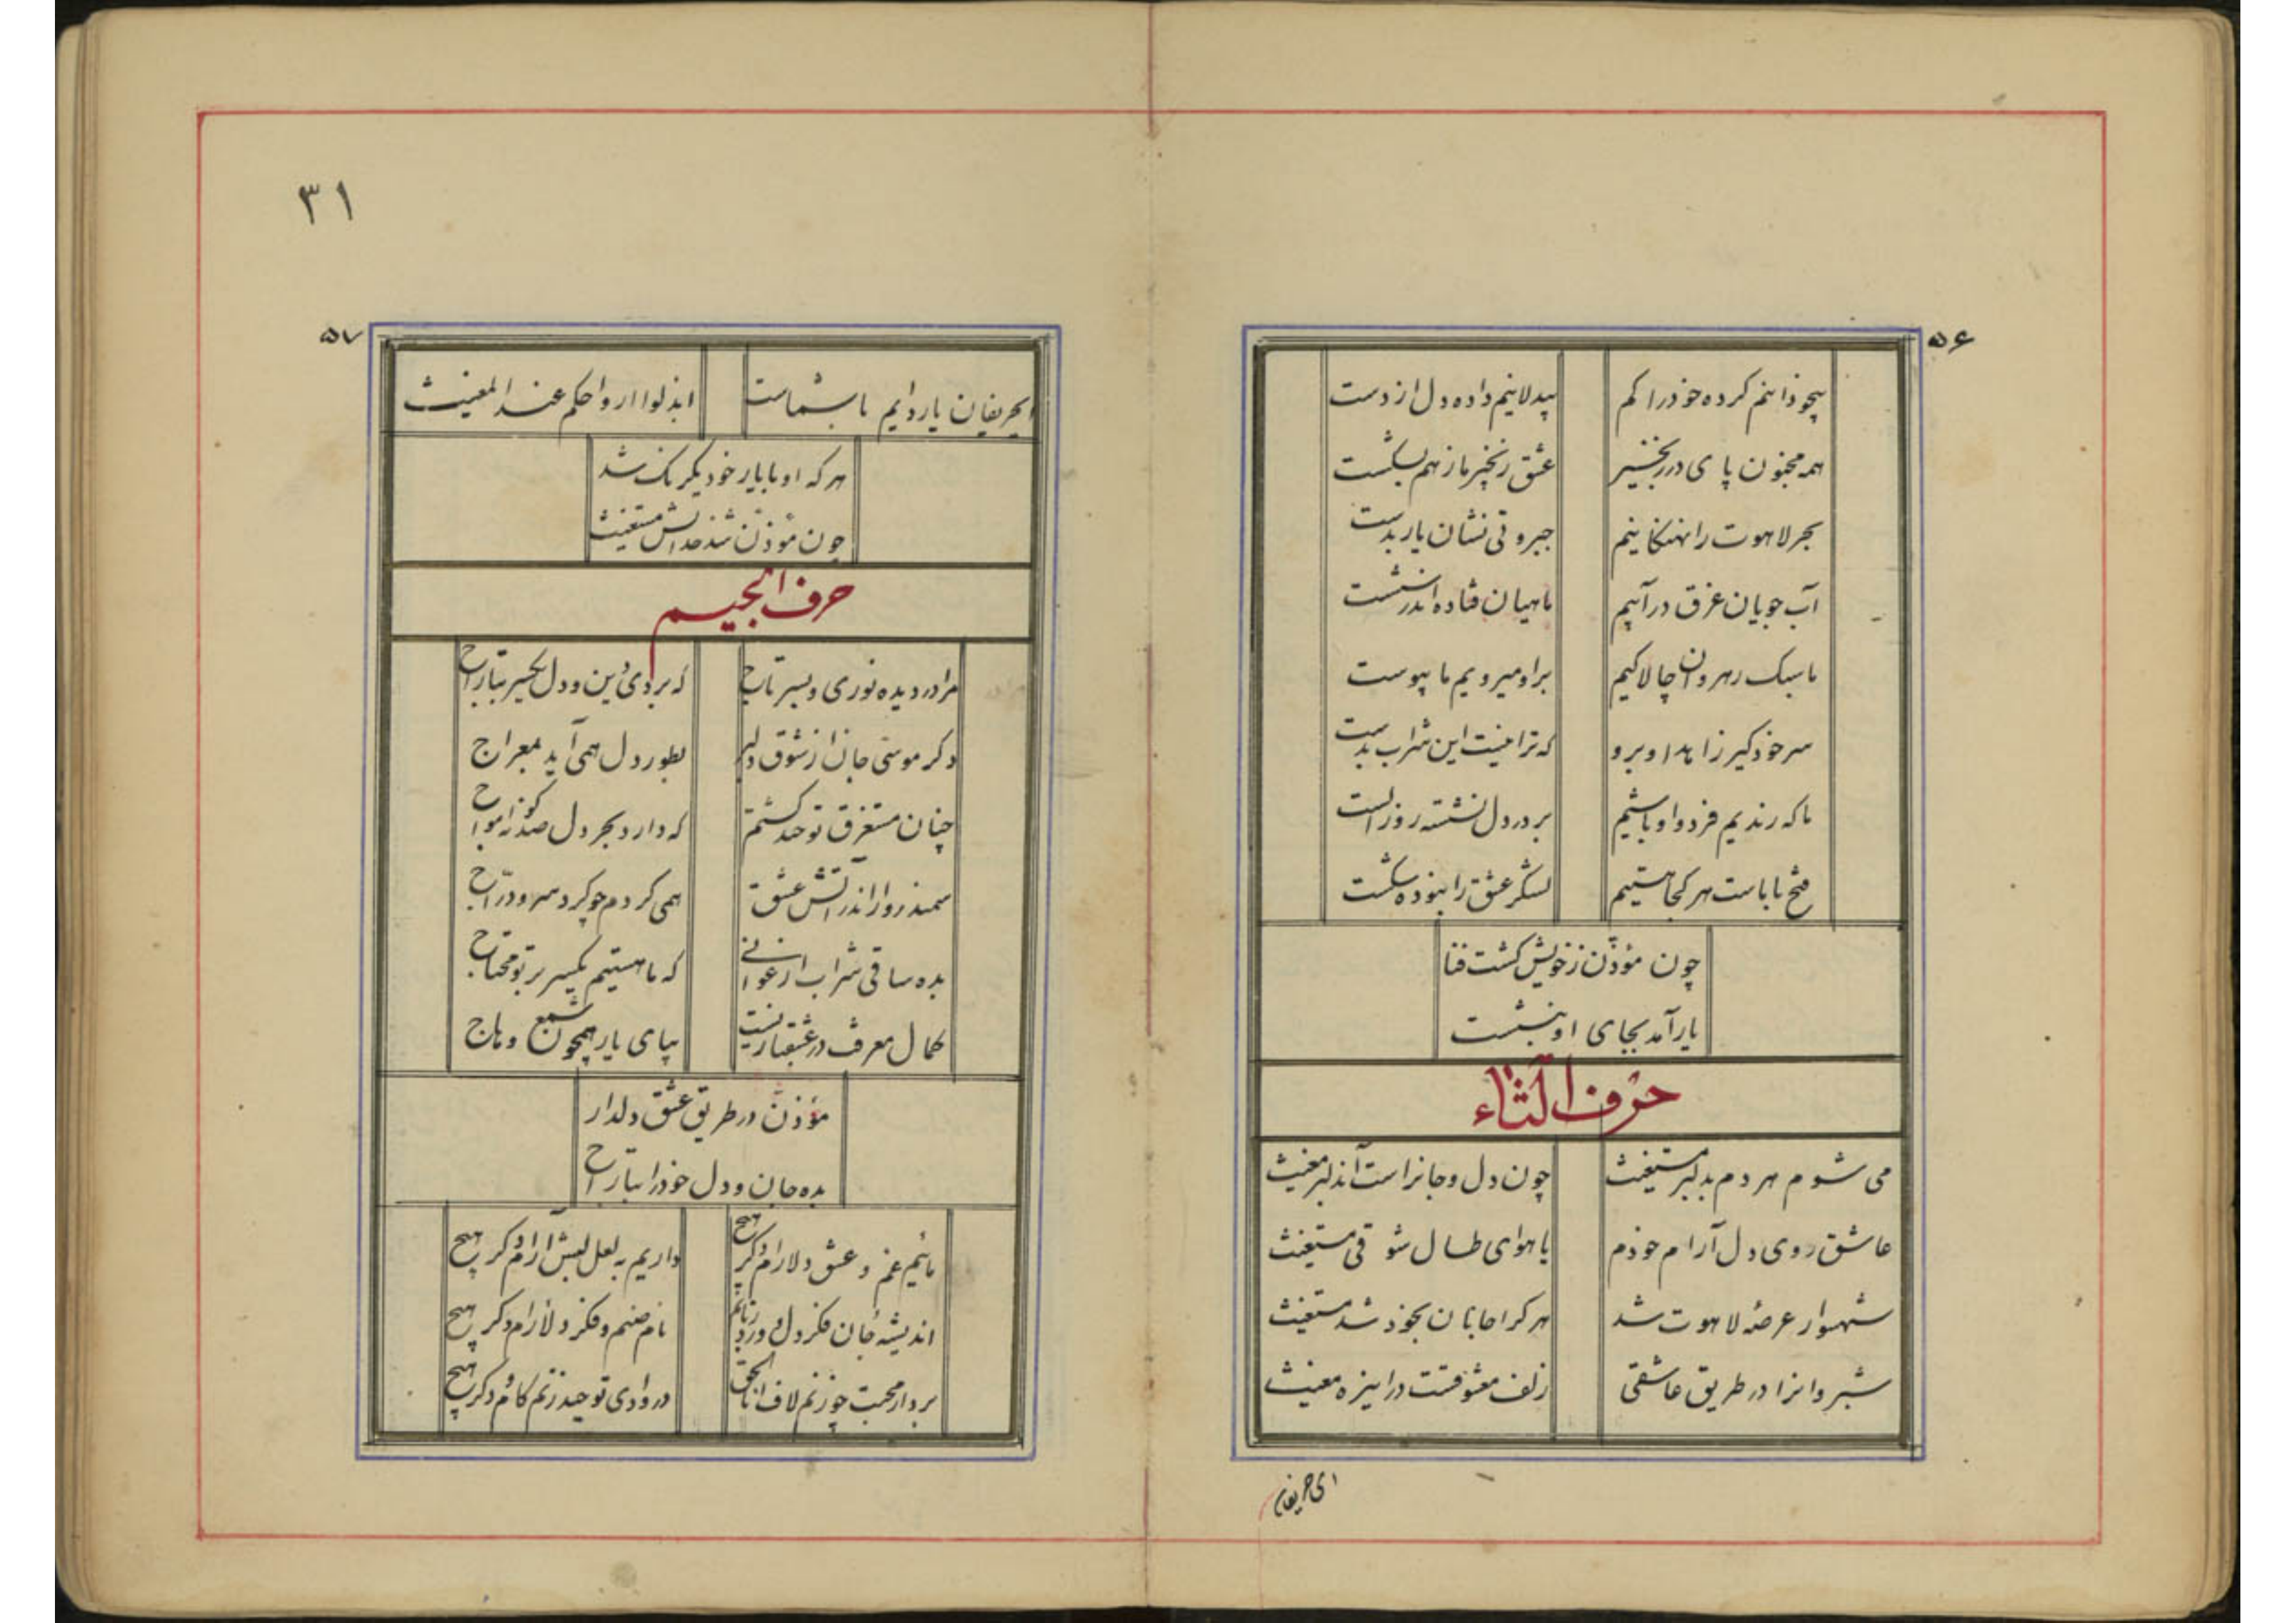 ۵۶
بیخودانیم کرده خود را کم
بیدلانیم داده دل از دست
همه مجنون پای در زنجیر
عشق زنجیر ما ز هم بشکست
بحر لاهوت را نهنکانیم
جبروتی نشان یار بدست
آب جویان غرق در آبیم
ماهیان فتاده اندر شست
ما سبک رهروان چالاکیم
براو میرویم ما پیوست
سر خود گیر زاهدا و برو
که ترا نیست این شراب بدست
ما که رندیم فرد و اوباشیم
بر در دل نشسته روز الست
فتح با ماست هر کجا هستیم
لشکر عشق را نبوده شکست
چون مؤذّن ز خویش کشت فنا
یار آمد بجای او بنشست
حرف الثاء
می شوم هر دم بدلبر مستغیث
چون دل و جانراست آندلبر مغیث
عاشق روی دل آرام خودم
یا هوای طال شوقی مستغیث
شهسوار عرصهٔ لاهوت شد
هر کرا جانان بخود شد مستغیث
شبروانرا در طریق عاشقی
زلف معشوقست در این ره مغیث
ای حریفان
۳۱
۵۷
ایحریفان یار دایم با شماست
ابذلوا ارواحکم عند المغیث
هر که او با یار خود یکرنک شد
چون مؤذّن شد خدایش مستغیث
حرف الجیم
مرا در دیده نوری و بسر تاج
که بردی دین و دل یکسر بتاراج
دکر موسی جان از شوق دلبر
بطور دل همی آید بمعراج
چنان مستغرق توحید کشتم
که دارد بحر دل صد کونه امواج
سمندروار اندر آتش عشق
همی کردم چو کرد سرو درّاج
بده ساقی شراب ارغوانی
که ما هستیم یکسر بر تو محتاج
کمال معرفت در عشقبازیست
بپای یار همچون شمع وهاج
مؤذن در طریق عشق دلدار
بده جان و دل خود را بتاراج
مائیم غم و عشق دلارام دکر هیچ
داریم به لعل لبش آرام دکر هیچ
اندیشهٔ جان فکر دل و ورد زبانم
نام صنم و فکر دلارام دکر هیچ
بر دار محبت چو زنم لاف انا الحق
در وادی توحید زنم کام دکر هیچ